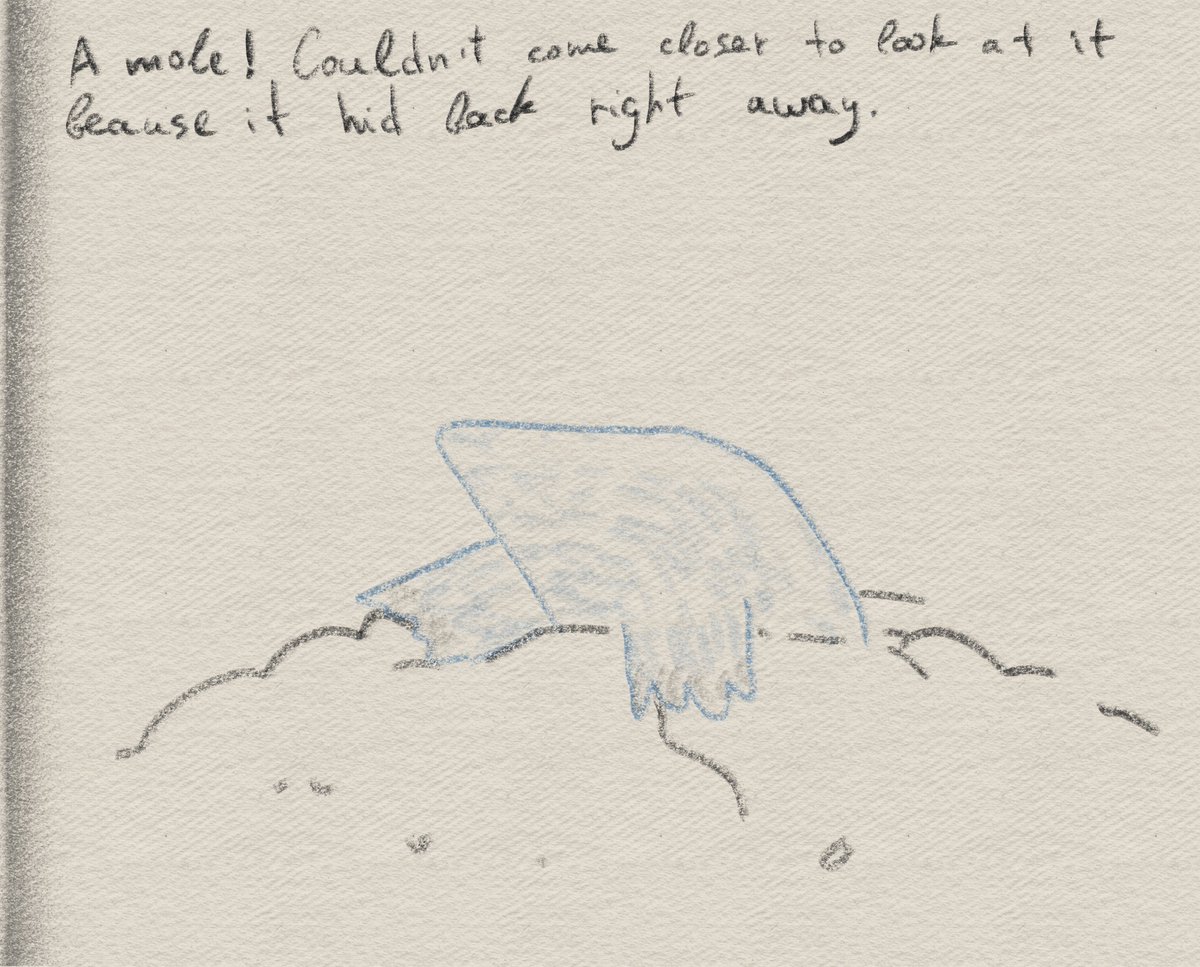 A mole! Couldn't come closer to look at it
beause it hid back right away.